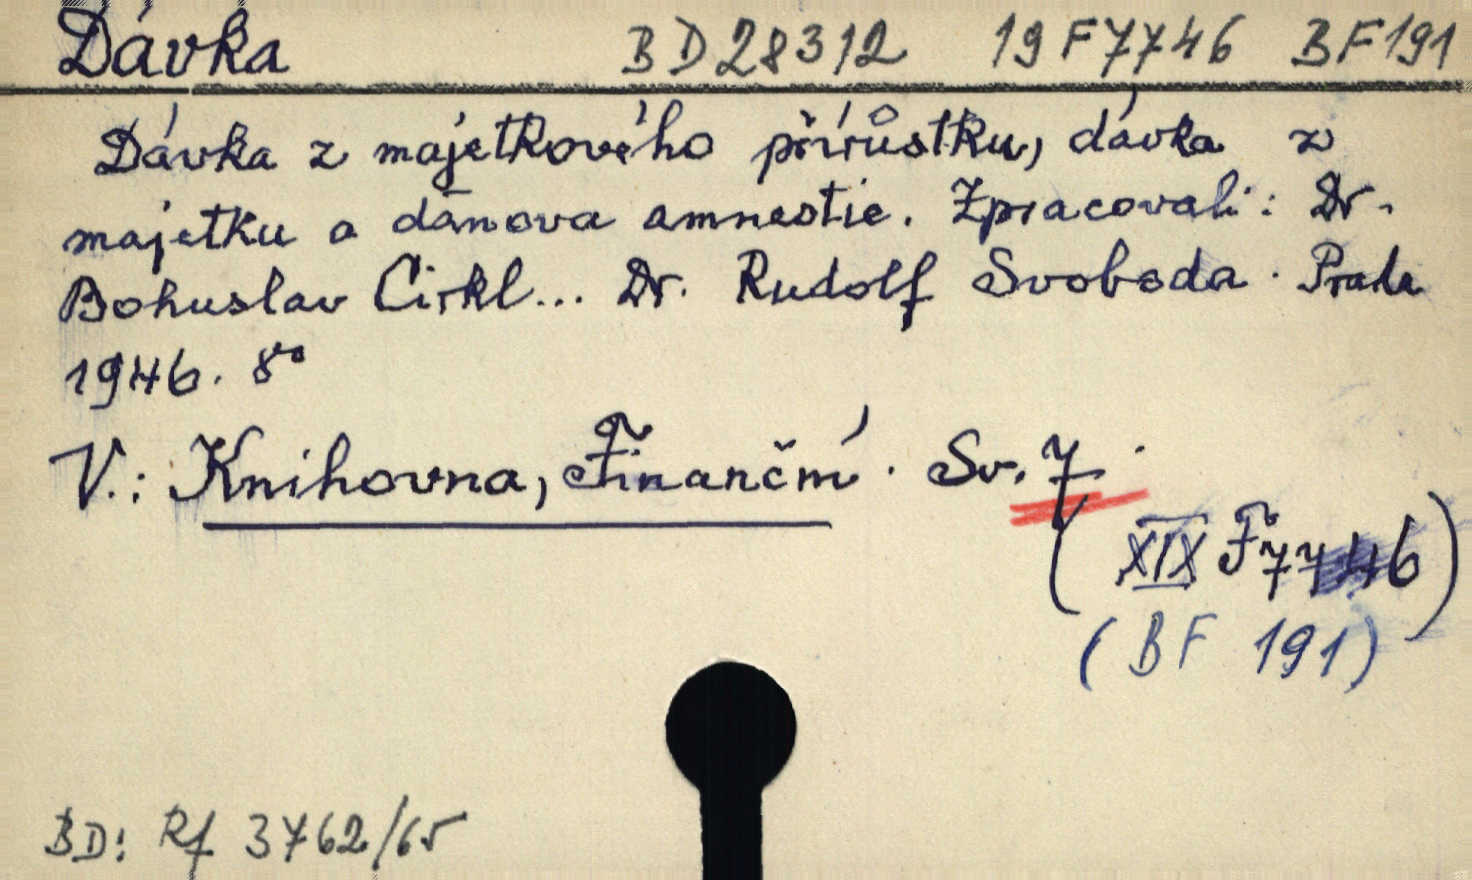 Dávka BD28312 19F7746 BF191
Dávka z majetkového přírůstku, dávka z
majetku a dańova amnestie. Zpracovali: Dr.
Bohuslav Cirkl... Dr. Rudolf Svoboda. Praha
1946. 8°
V.: Knihovna, Finanční. Sv. 7.
(XIX F 7746)
(BF 191)
BD: Rf 3762/65